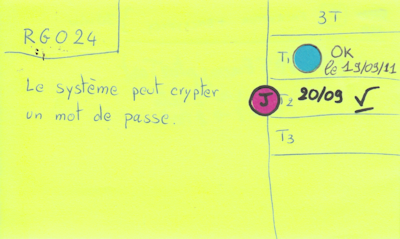 RGO24
Le système peut crypter
un mot de passe.
3T
T1 OK
le 19/09/11
J T2 20/09 ✓
T3